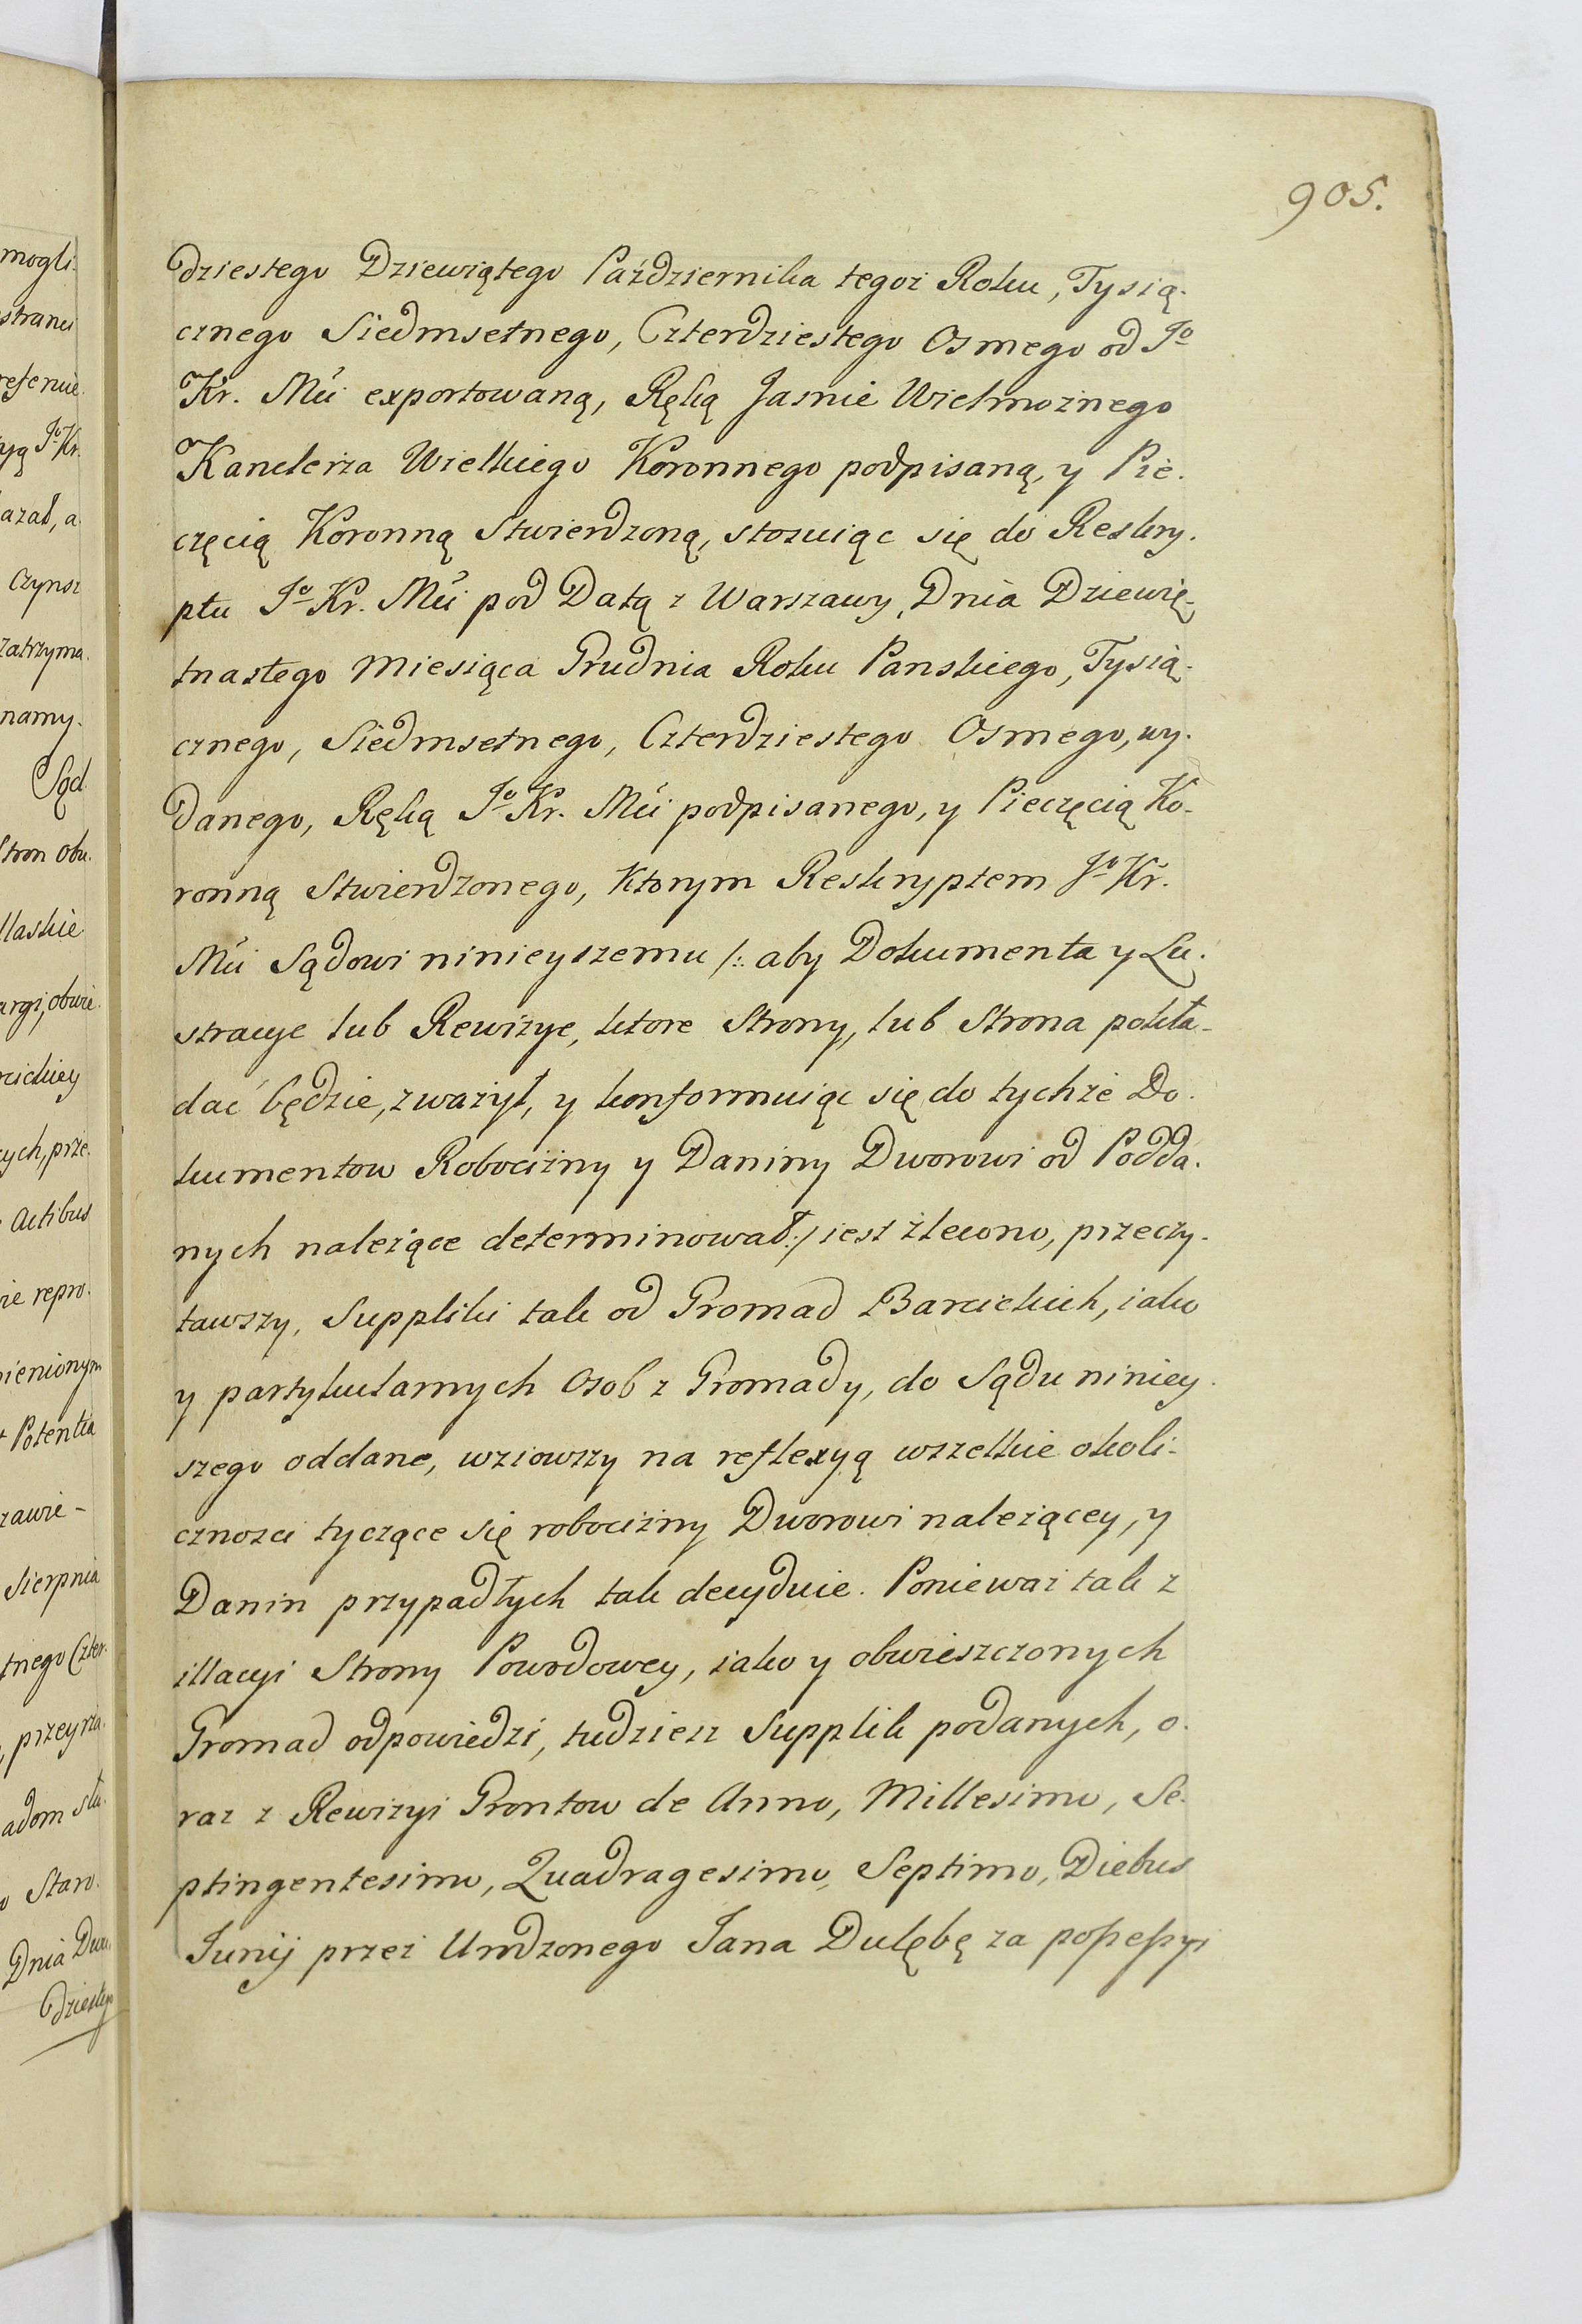 905.
dziestego Dziewiątego Października tegoż Roku, Tysią-
cznego Siedmsetnego, Czterdziestego Osmego od Jo
Kr. Mci exportowaną, Ręką Jasnie Wielmożnego
Kanclerza Wielkiego Koronnego podpisaną, y Pie-
częcią Koronną Stwierdzoną, stosuiąc się do Reskry-
ptu Jo Kr. Mci pod Datą z Warszawy, Dnia Dziewię-
tnastego Miesiąca Grudnia Roku Panskiego, Tysią-
cznego, Siedmsetnego, Czterdziestego Osmego, wy-
danego, Ręką Jo Kr. Mci podpisanego, y Pieczęcią Ko-
ronną Stwierdzonego, Ktorym Reskryptem Jo Kr.
Mci Sądowi ninieyszemu /: aby Dokumenta y Lu-
stracye lub Rewizye, ktore Strony, lub Strona pokła-
dać będzie, zważył, y konformuiąc się do tychże Do-
kumentow Robocizny y Daniny Dworowi od Podda-
nych należące determinował :/ iest zlecono, przeczy-
tawszy, Suppliki tak od Gromad Barcickich, iako
y partykularnych Osob z Gromady, do Sądu niniey-
szego oddane, wziowszy na reflexyą wszelkie okoli-
cznosci tyczące się robocizny Dworowi należącey, y
Danin przypadłych tak decyduie. Ponieważ tak z
illacyi Strony Powodowey, iako y obwieszczonych
Gromad odpowiedzi, tudziesz Supplik podanych, o-
raz z Rewizyi Grontow de Anno, Millesimo, Se-
ptingentesimo, Quadragesimo, Septimo, Diebus
Junij przez Urodzonego Jana Dulębę za possessyi
mogli
Kr.
azał, a
czynsz
zatrzyma
namy.
Sąd
Stron obu
ych, prze
Actibus
ie repro
ienionym
Potentia
zawie-
Sierpnia
tnego Czter
przeyrza
adom słu
Staro
Dnia Dwu
dziestego